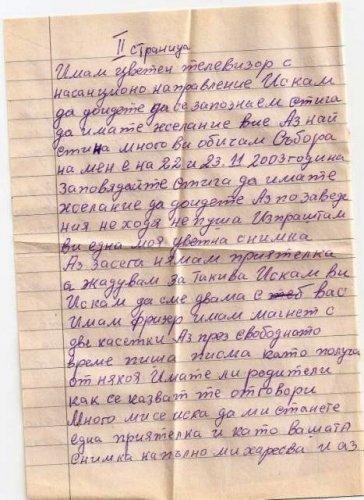 II страница
Имам цветен телевизор с
насанционо направление Искам
да дойдете да се запознаем стига
да имате желание вие Аз най
стина много ви обичам Събора
на мен е на 22 и 23. 11 2003 година
Заповядайте стига да имате
желание да дойдете Аз по заведе
ния не ходя не пуша Изпраштам
ви една моя цветна снимка
Аз засега нямам приятелка
а жадувам за такива Искам ви
Искам да сме двама с теб вас
Имам фризер имам магнет с
две касетки Аз през свободното
време пиша писма като получа
от някоя Имате ли родители
как се казват те отговори
Много ми се иска да ми станете
една приятелка и като вашата
снимка напълно ми харесва и аз